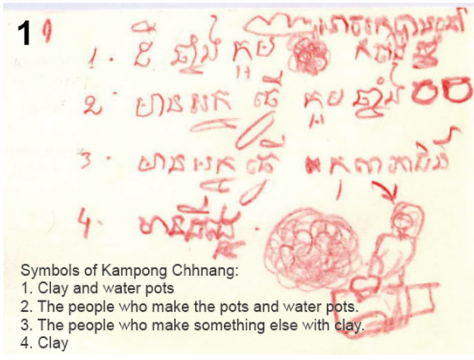 1
1. ដី ឆ្នាំង ក្អម
2. មានអ្នក ធើ ក្អម ឆ្នាំង
3. មានអ្នក ធើ
4. មាន
Symbols of Kampong Chhnang:
1. Clay and water pots
2. The people who make the pots and water pots.
3. The people who make something else with clay.
4. Clay